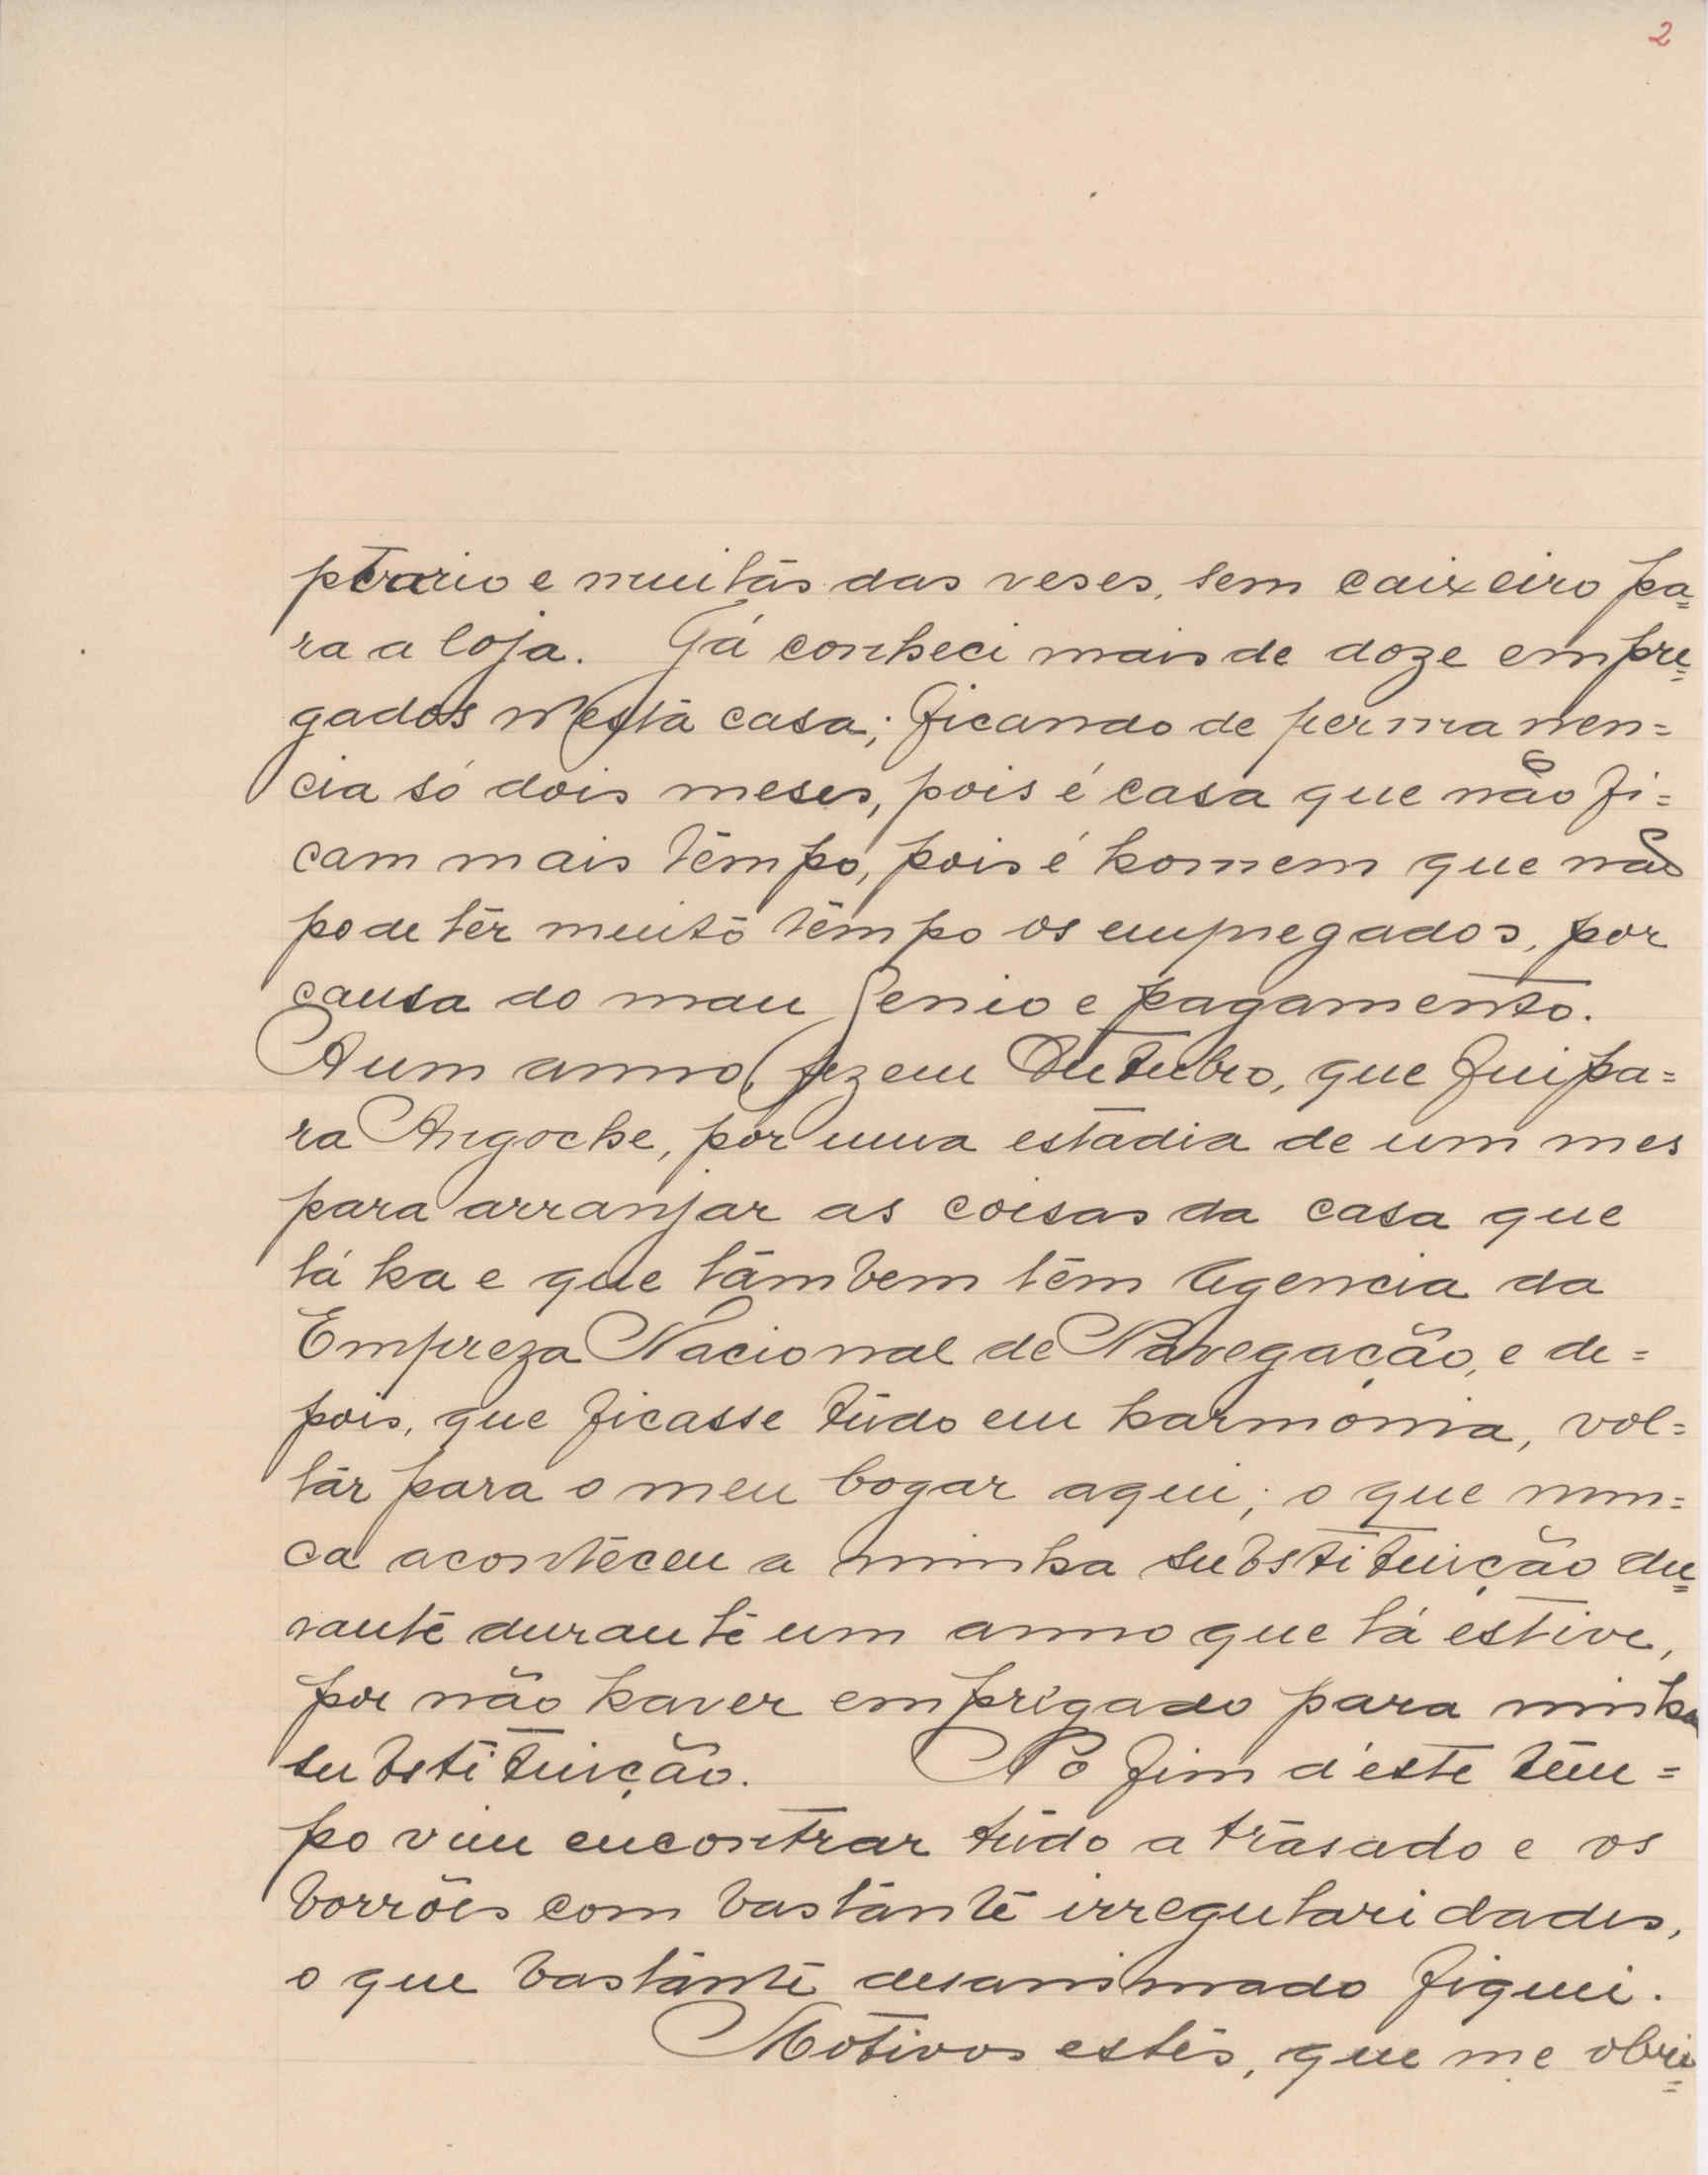 2
ptorario e muitas das veses, sem caixeiro pa=
ra a loja. Já conheci mais de doze empre=
gados n'esta casa; ficando de permanen=
cia só dois meses, pois é casa que não fi=
cam mais tempo, pois é homem que não
pode ter muito tempo os empregados, por
causa do mau genio e pagamento.
A um anno, fez em Outubro, que fui pa=
ra Angoche, por uma estadia de um mes
para arranjar as coisas da casa que
lá ha e que tambem tem agencia da
Empreza Nacional de Navegação, e de=
pois, que ficasse tudo em harmonia, vol=
tar para o meu logar aqui; o que nun=
ca aconteceu a minha substituição du=
rante durante um anno que lá estive,
por não haver emprigado para minha
substituição. No fim d'este tem=
po vim encontrar tudo atrasado e os
borrões com bastante irregularidades,
o que bastante desanimado fiquei.
Motivos estes, que me obri=